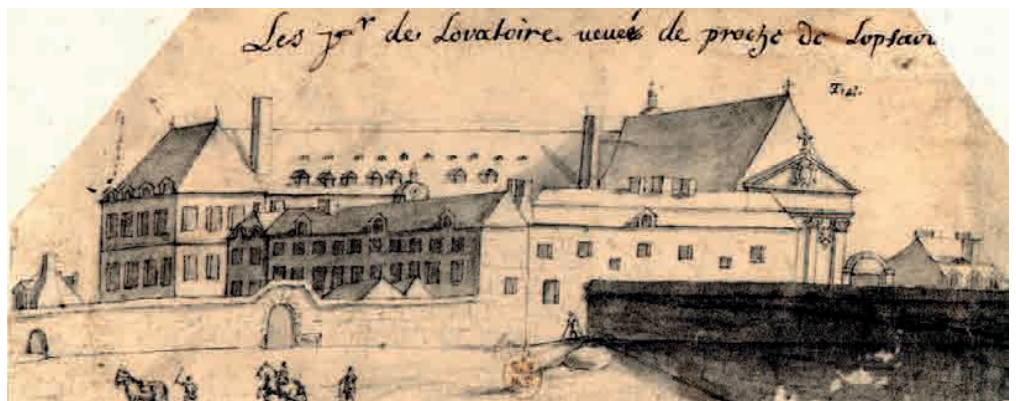 Les pr de Lovatoire veuee de proche de Lopsavr